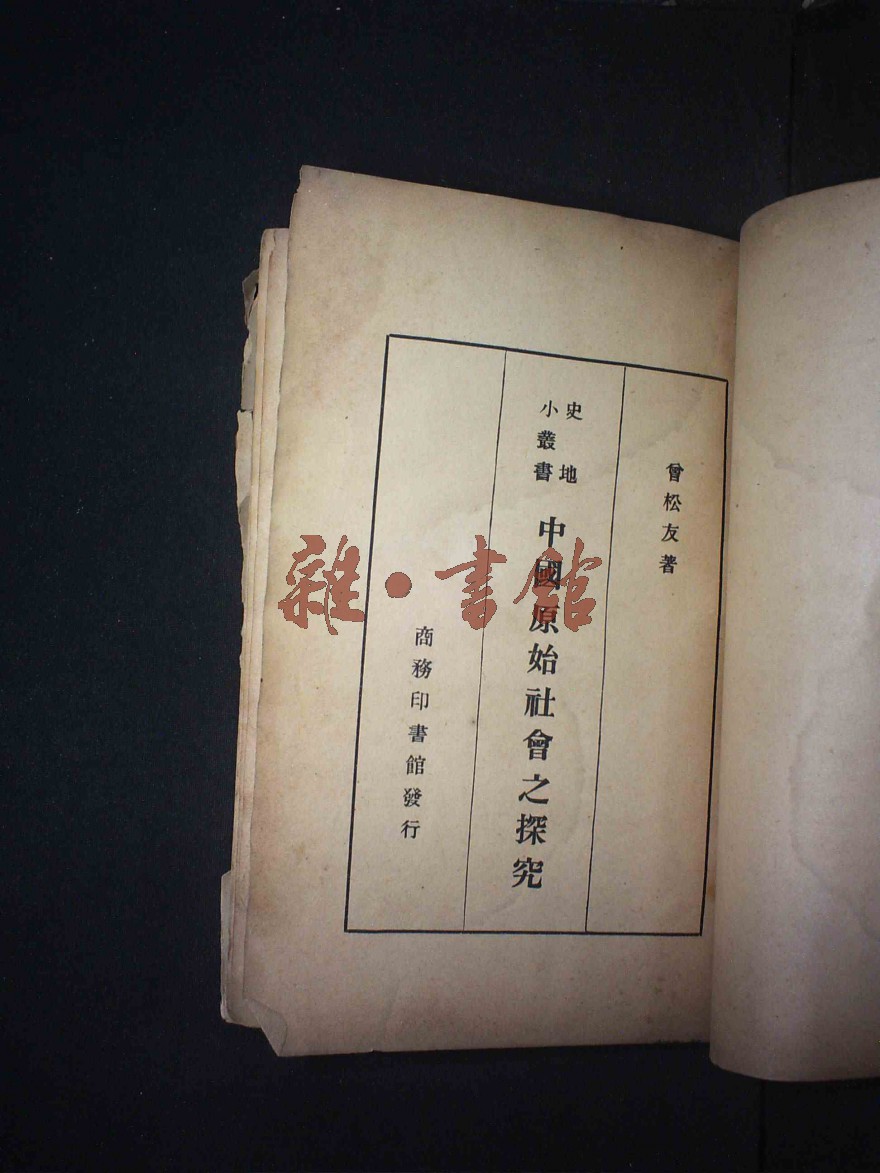 曾松友著
史地
小叢書
中國原始社會之探究
商務印書館發行
雜·書館